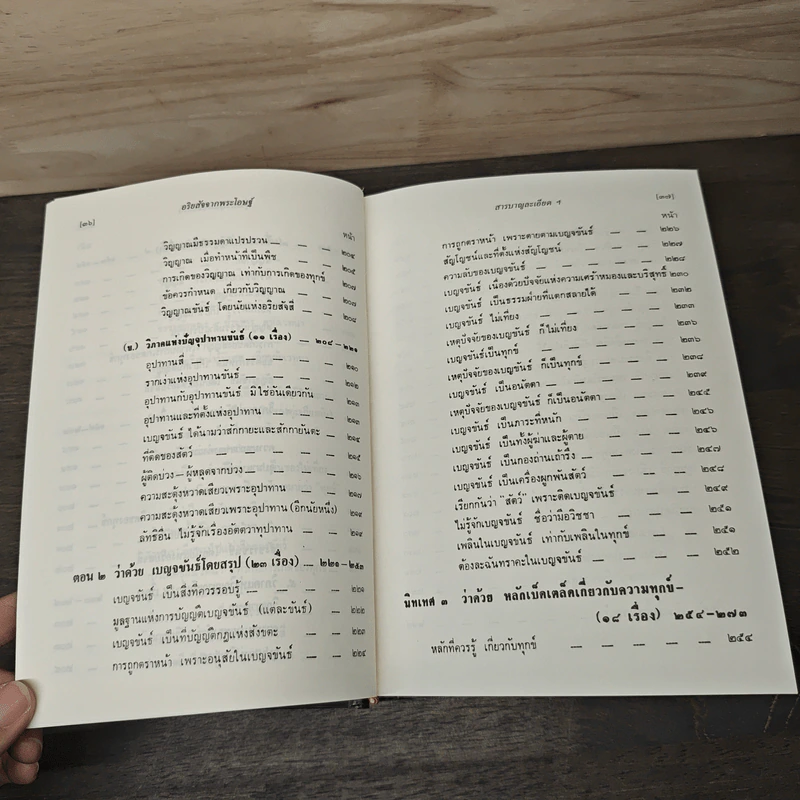 [๓๖]
อริยสัจจากพระโอษฐ์
หน้า
วิญญาณมีธรรมดาแปรปรวน — — — ๒๐๕
วิญญาณ เมื่อทำหน้าที่เป็นพืช — — — ๒๐๕
การเกิดของวิญญาณ เท่ากับการเกิดของทุกข์ ๒๐๗
ข้อควรกำหนด เกี่ยวกับวิญญาณ — — ๒๐๗
วิญญาณขันธ์ โดยนัยแห่งอริยสัจสี่ — — ๒๐๘
(ข.) วิภาคแห่งปัญจุปาทานขันธ์ (๑๑ เรื่อง) — ๒๐๙–๒๒๑
อุปาทานสี่ — — — — — ๒๑๐
รากเง่าแห่งอุปาทานขันธ์ — — — —
อุปาทานกับอุปาทานขันธ์ มิใช่อันเดียวกัน
อุปาทานและที่ตั้งแห่งอุปาทาน — —
เบญจขันธ์ ได้นามว่าสักกายะและสักกายันตะ — ๒๑๔
ที่ติดของสัตว์ — — — — ๒๑๕
ผู้ติดบ่วง – ผู้หลุดจากบ่วง — — — ๒๑๖
ความสะดุ้งหวาดเสียวเพราะอุปาทาน — — ๒๑๗
ความสะดุ้งหวาดเสียวเพราะอุปาทาน (อีกนัยหนึ่ง) ๒๑๙
ลัทธิอื่น ไม่รู้จักเรื่องอัตตวาทุปาทาน — —
ตอน ๒ ว่าด้วย เบญจขันธ์โดยสรุป (๒๓ เรื่อง) — ๒๒๑–๒๕๓
เบญจขันธ์ เป็นสิ่งที่ควรรอบรู้ — — —
มูลฐานแห่งการบัญญัติเบญจขันธ์ (แต่ละขันธ์) — ๒๒๒
เบญจขันธ์ เป็นที่บัญญัติกฎแห่งสังขตะ — — ๒๒๓
การถูกตราหน้า เพราะอนุสัยในเบญจขันธ์ — — ๒๒๔
สารบาญละเอียด
[๓๗]
หน้า
การถูกตราหน้า เพราะตายตามเบญจขันธ์ — — ๒๒๖
สัญโญชน์และที่ตั้งแห่งสัญโญชน์ — — — ๒๒๗
ความลับของเบญจขันธ์ — — — — ๒๒๘
เบญจขันธ์ เนื่องด้วยปัจจัยแห่งความเศร้าหมองและบริสุทธิ์ ๒๓๐
เบญจขันธ์ เป็นธรรมฝ่ายที่แตกสลายได้ — — ๒๓๒
เบญจขันธ์ ไม่เที่ยง — — — — ๒๓๓
เหตุปัจจัยของเบญขันธ์ ก็ไม่เที่ยง — — ๒๓๖
เบญจขันธ์เป็นทุกข์ — — — — ๒๓๖
เหตุปัจจัยของเบญจขันธ์ ก็เป็นทุกข์ — — ๒๓๘
เบญจขันธ์ เป็นอนัตตา — — — — ๒๓๙
เหตุปัจจัยของเบญจขันธ์ ก็เป็นอนัตตา — — ๒๔๕
เบญจขันธ์ เป็นภาระที่หนัก — — — ๒๔๖
เบญจขันธ์ เป็นทั้งผู้ฆ่าและผู้ตาย — — ๒๔๖
เบญจขันธ์ เป็นกองถ่านเถ้ารึง — — — ๒๔๗
เบญจขันธ์ เป็นเครื่องผูกพันสัตว์ — — — ๒๔๘
เรียกกันว่า "สัตว์" เพราะติดเบญจขันธ์ — — ๒๔๙
ไม่รู้จักเบญจขันธ์ ชื่อว่ามีอวิชชา — — — ๒๕๑
เพลินในเบญจขันธ์ เท่ากับเพลินในทุกข์ — — ๒๕๑
ต้องละฉันทราคะในเบญจขันธ์ — — — ๒๕๒
นิทเทศ ๓ ว่าด้วย หลักเบ็ดเตล็ดเกี่ยวกับความทุกข์–
(๑๘ เรื่อง) ๒๕๔–๒๗๓
หลักที่ควรรู้ เกี่ยวกับทุกข์ — — — — ๒๕๔